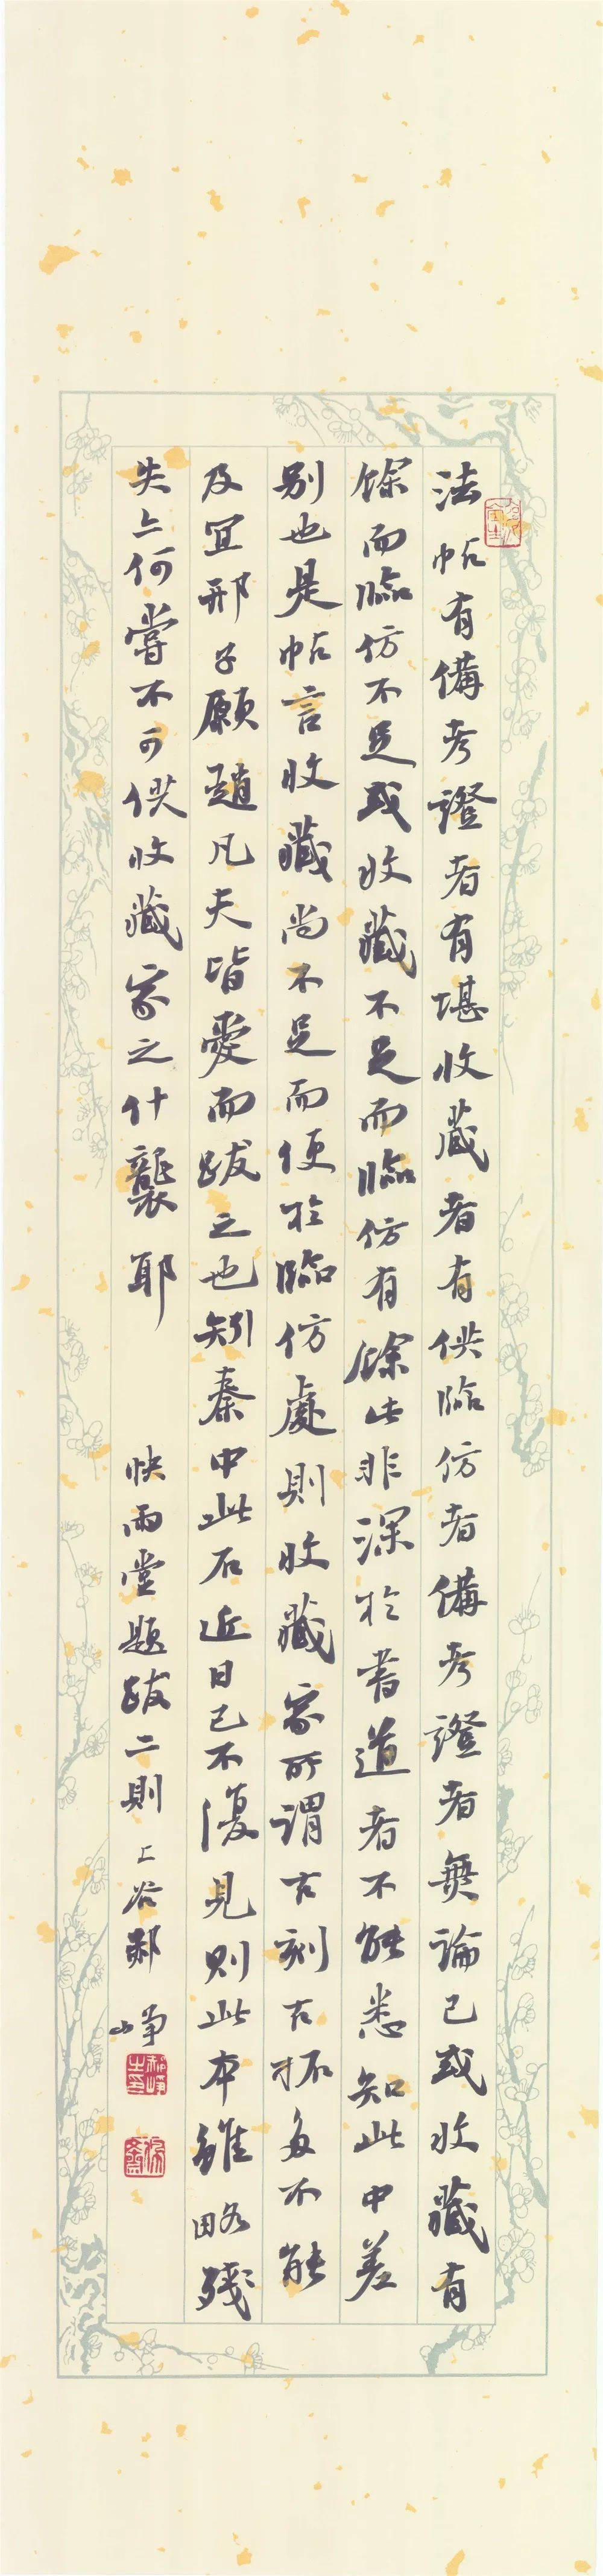 法帖有備考證者有堪收藏者有供臨仿者備考證者無論已或收藏有
餘而臨仿不足或收藏不足而臨仿有餘此非深於書道者不能悉知此中差
別也是帖言收藏尚不足而便於臨仿處則收藏家所謂古刻古拓多不能
及宜邢子願趙凡夫皆愛而跋之也矧秦中此石近日已不復見則此本雖略殘
失亦何嘗不可供收藏家之什襲耶 快雨堂題跋二則 上谷郝崢